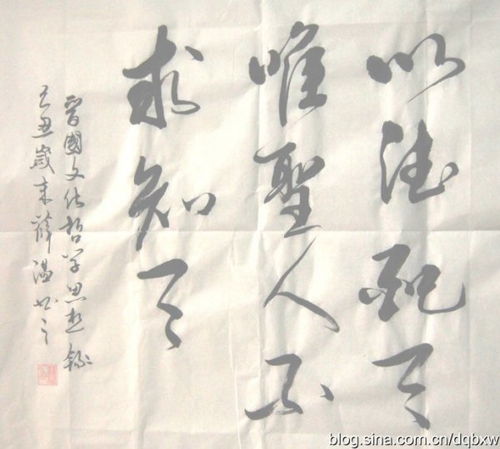 以德配天
唯聖人不
求知天
晉國文化哲學思想錄
己丑歲末薛温書之
blog.sina.com.cn/dqbxw